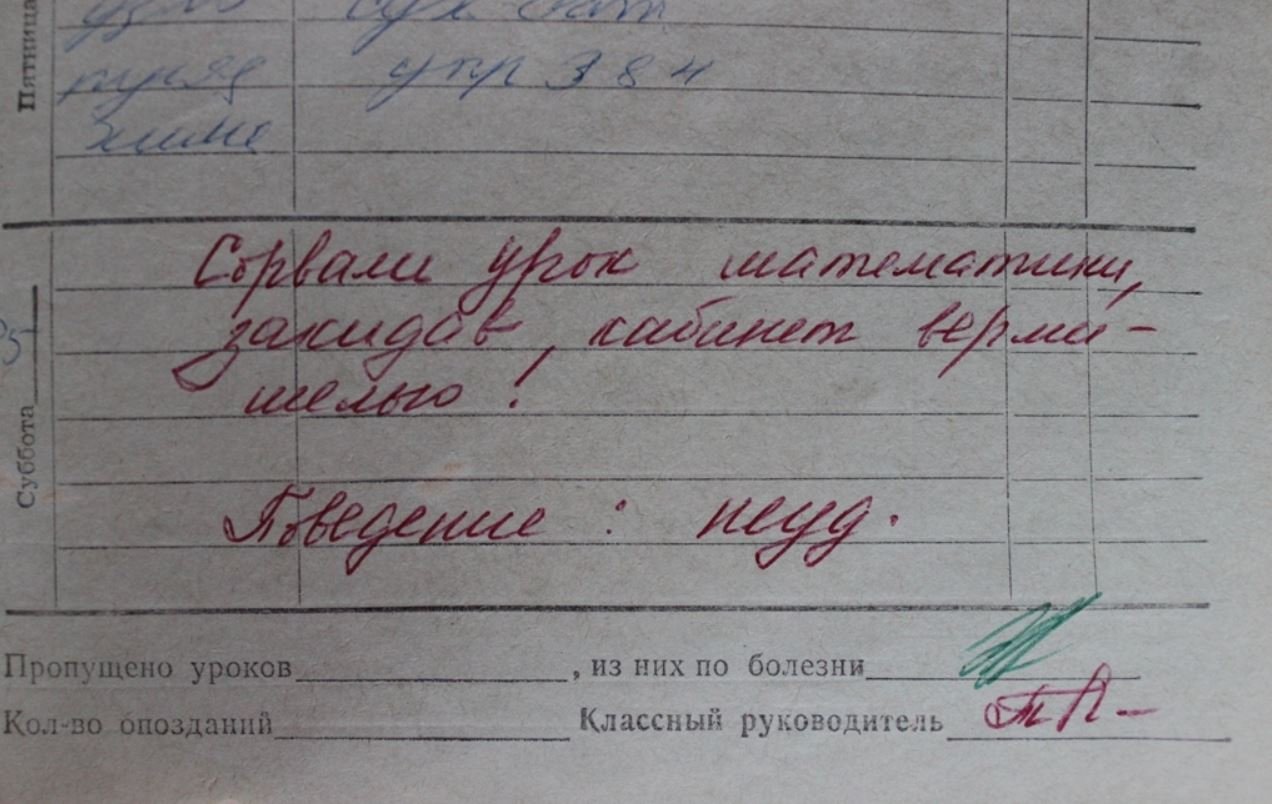 Пятница
упр 384
Сорвали урок математики,
закидав, кабинет верми-
шелью!
Суббота
Поведение: неуд.
Пропущено уроков, из них по болезни
Кол-во опозданий Классный руководитель